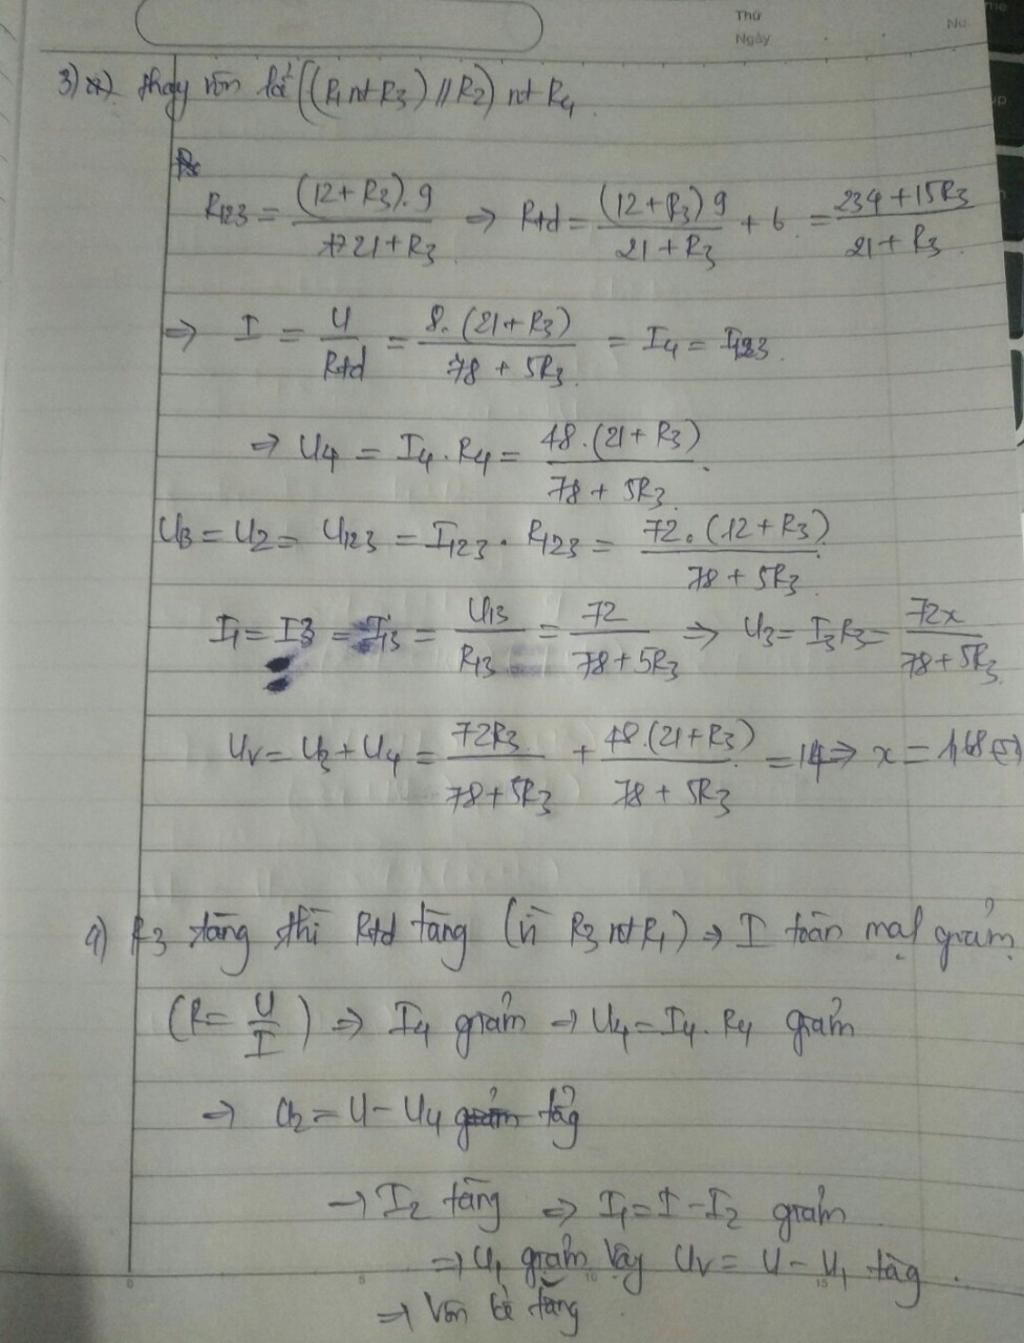 Thứ
Ngày
No.
3) a) thay vôn kế ((R₁ nt R₃) // R₂) nt R₄
R₁₂₃ = (12+R₃).9 / 21+R₃ => Rtd = (12+R₃)9 / 21+R₃ + 6 = 234+15R₃ / 21+R₃
=> I = U / Rtd = 8.(21+R₃) / 78+5R₃ = I₄ = I₁₂₃
=> U₄ = I₄.R₄ = 48.(21+R₃) / 78+5R₃
U₁₃ = U₂ = U₁₂₃ = I₁₂₃ . R₁₂₃ = 72.(12+R₃) / 78+5R₃
I₁ = I₃ = I₁₃ = U₁₃ / R₁₃ = 72 / 78+5R₃ => U₃ = I₃R₃ = 72x / 78+5R₃
Uv = U₃ + U₄ = 72R₃ / 78+5R₃ + 48.(21+R₃) / 78+5R₃ = 14 => x = 1,68
4) R₃ tăng thì Rtd tăng (vì R₃ nt R₁) => I toàn mạch giảm
(R = U / I) => I₄ giảm -> U₄ = I₄.R₄ giảm
=> U₂ = U - U₄ tăng
-> I₂ tăng => I₁ = I - I₂ giảm
=> U₁ giảm vậy Uv = U - U₁ tăng.
=> Vôn kế tăng
0 5 10 15